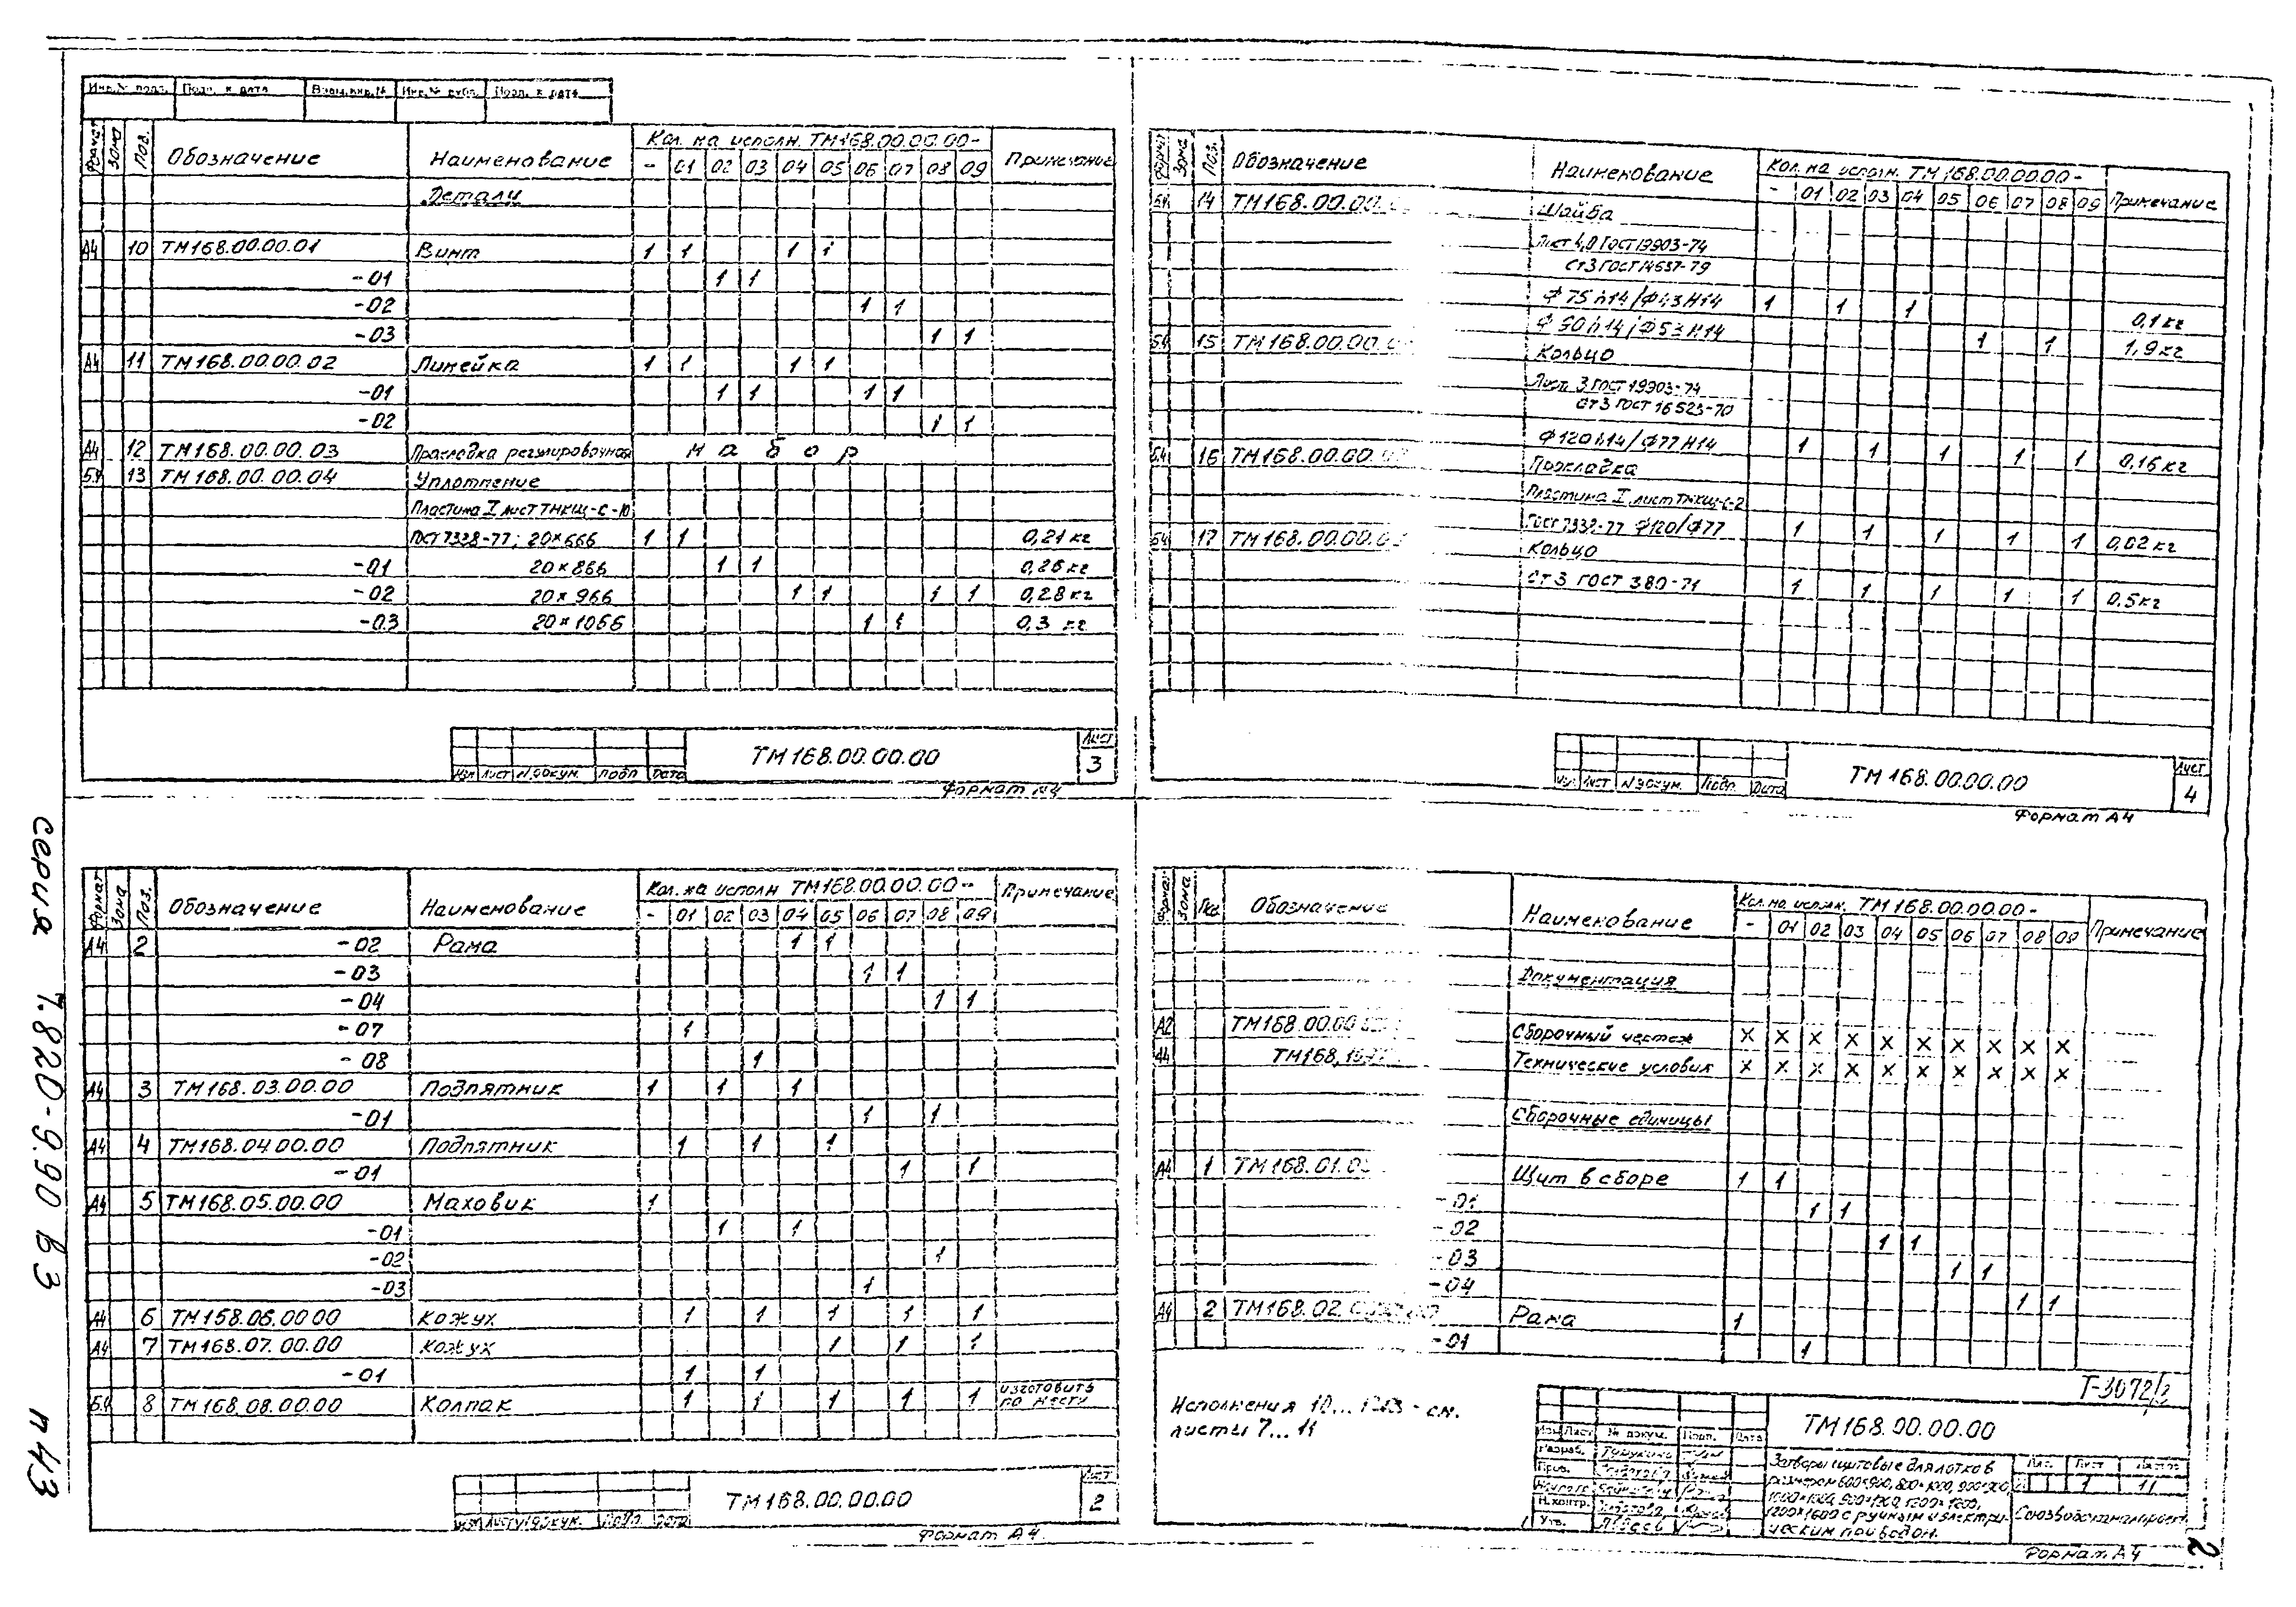 серия 7.820-9.90 в 3 п 43
Инв.№ подл. Подп. и дата Взам.инв.№ Инв.№ дубл. Подп. и дата
Формат Зона Поз. Обозначение Наименование Кол. на исполн. ТМ168.00.00.00- Примечание
- 01 02 03 04 05 06 07 08 09
Детали
А4 10 ТМ168.00.00.01 Винт 1 1 1 1
-01 1 1
-02 1 1
-03 1 1
А4 11 ТМ168.00.00.02 Линейка 1 1 1 1
-01 1 1 1 1
-02 1 1
А4 12 ТМ168.00.00.03 Прокладка регулировочная набор
БЧ 13 ТМ168.00.00.04 Уплотнение
Пластина I лист ТМКЩ-С-10
ГОСТ 7338-77; 20×666 1 1 0,21 кг
-01 20×866 1 1 0,26 кг
-02 20×966 1 1 1 1 0,28 кг
-03 20×1066 1 1 0,3 кг
ТМ168.00.00.00 Лист 3
Изм Лист N докум. Подп Дата
Формат А4
Формат Зона Поз. Обозначение Наименование Кол. на исполн. ТМ168.00.00.00- Примечание
- 01 02 03 04 05 06 07 08 09
БЧ 14 ТМ168.00.00. Шайба
Лист 4,0 ГОСТ 19903-74
Ст3 ГОСТ 14637-79
Ф75 h14/Ф43 H14 1 1 1 0,1 кг
Ф 90 h14/Ф53 H14 1 1 1,9 кг
БЧ 15 ТМ168.00.00. Кольцо
Лист 3 ГОСТ 19903-74
Ст3 ГОСТ 16523-70
Ф120 h14/Ф77 H14 1 1 1 1 1 0,16 кг
БЧ 16 ТМ168.00.00. Прокладка
Пластина I лист ТМКЩ-С-2
ГОСТ 7338-77 Ф120/Ф77 1 1 1 1 1 0,02 кг
БЧ 17 ТМ168.00.00. Кольцо
Ст3 ГОСТ 380-71 1 1 1 1 1 0,5кг
ТМ168.00.00.00 Лист 4
Изм Лист N докум. Подп. Дата
Формат А4
Формат Зона Поз. Обозначение Наименование Кол. на исполн ТМ168.00.00.00- Примечание
- 01 02 03 04 05 06 07 08 09
А4 2 -02 Рама 1 1
-03 1 1
-04 1 1
-07 1
-08 1
А4 3 ТМ168.03.00.00 Подпятник 1 1 1
-01 1 1
А4 4 ТМ168.04.00.00 Подпятник 1 1 1
-01 1 1
А4 5 ТМ168.05.00.00 Маховик 1
-01 1 1
-02 1
-03 1
А4 6 ТМ168.06.00 00 Кожух 1 1 1 1 1
А4 7 ТМ168.07.00.00 Кожух 1 1 1
-01 1 1
БЧ 8 ТМ168.08.00.00 Колпак 1 1 1 1 1 изготовить по месту
ТМ168.00.00.00 Лист 2
Изм Лист N докум. Подп. Дата
Формат А4
Формат Зона Поз Обозначение Наименование Кол. на исполн. ТМ168.00.00.00- Примечание
- 01 02 03 04 05 06 07 08 09
Документация
А2 ТМ168.00.00 Сборочный чертеж × × × × × × × × × ×
А4 ТМ168. Технические условия × × × × × × × × × ×
Сборочные единицы
А4 1 ТМ168.01. Щит в сборе 1 1
-01 1 1
-02 1 1
-03 1 1
-04 1 1
А4 2 ТМ168.02. Рама 1
-01 1
Т-3072/2
Исполнения 10... - см.
листы 7...11
ТМ168.00.00.00
Изм Лист № докум. Подп. Дата
Разраб.
Пров.
Н.контр.
Утв.
Затворы щитовые для лотков
размером 600×900, 800×1000, 900×900,
1000×1000, 900×1200, 1200×1200,
1200×1600 с ручным и электри-
ческим приводом.
Лит. Лист Листов
1 11
Союзводоканалпроект
Формат А4
2